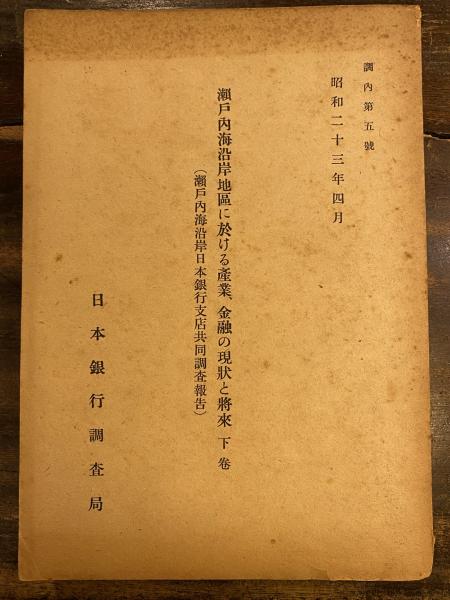 調內第五號
昭和二十三年四月
瀬戶內海沿岸地區に於ける產業、金融の現狀と將來 下卷
（瀬戶內海沿岸日本銀行支店共同調査報吿）
日本銀行調査局